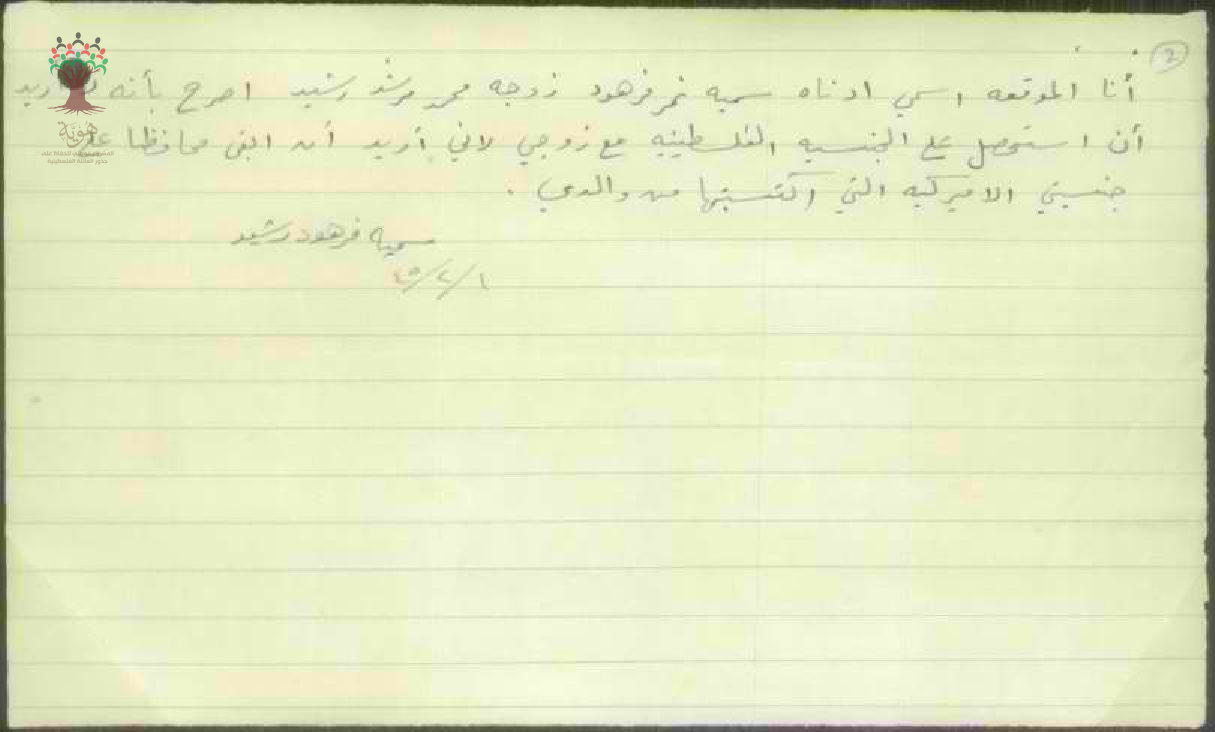 2
أنا الموقعه اسمي ادناه سميه نمر فرهود زوجه محمد مرشد رشيد اصرح بأنه لا اريد
أن استحصل على الجنسيه الفلسطينيه مع زوجي لاني أريد أن ابقى محافظا على
جنسيتي الاميركيه التي اكتسبتها من والدي .
سميه فرهود رشيد
١/٢/٤٥
هوية